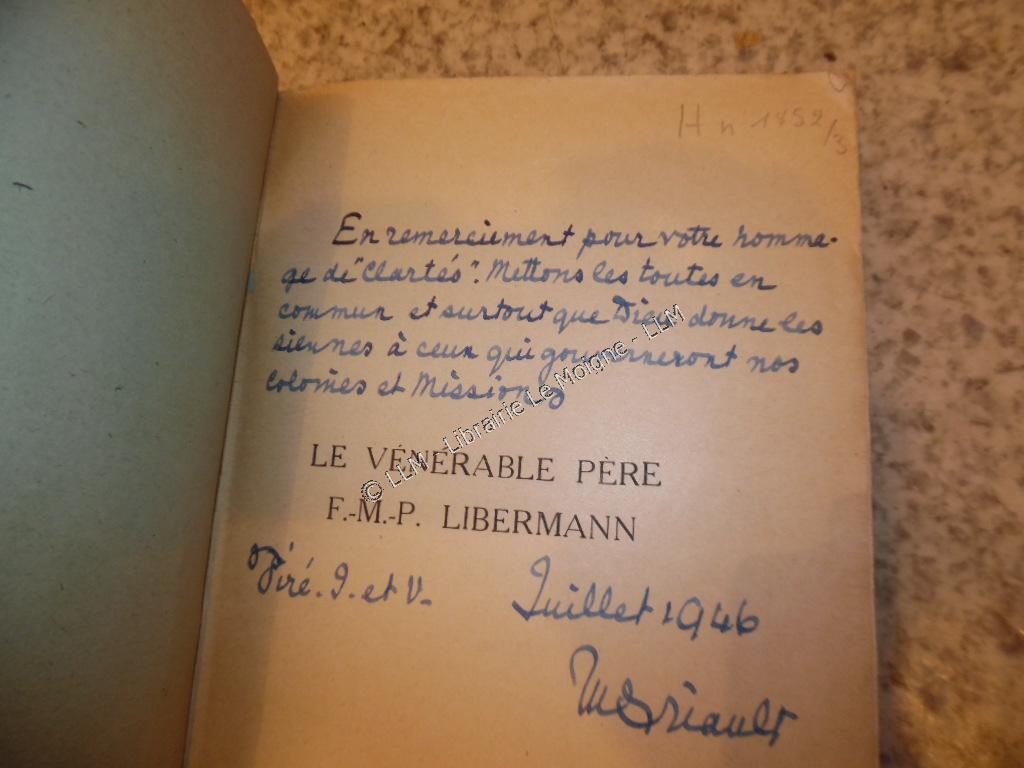 H n 1852/3
En remerciement pour votre homma-
ge de "Clartés". Mettons les toutes en
commun et surtout que Dieu donne les
siennes à ceux qui gouverneront nos
Colonies et Missions
© LLM - Librairie Le Moigne - LLM
LE VÉNÉRABLE PÈRE
F.-M.-P. LIBERMANN
Piré. I. et V.
Juillet 1946
Briault